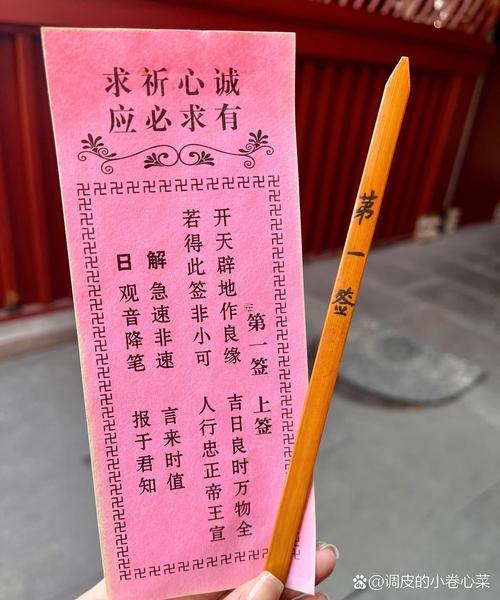 诚心祈求
有求必应
第一签 上签
开天辟地作良缘 吉日良时万物全
若得此签非小可 人行忠正帝王宣
解 急速非速 言来时值
日 观音降笔 报于君知
苐一签
@调皮的小卷心菜